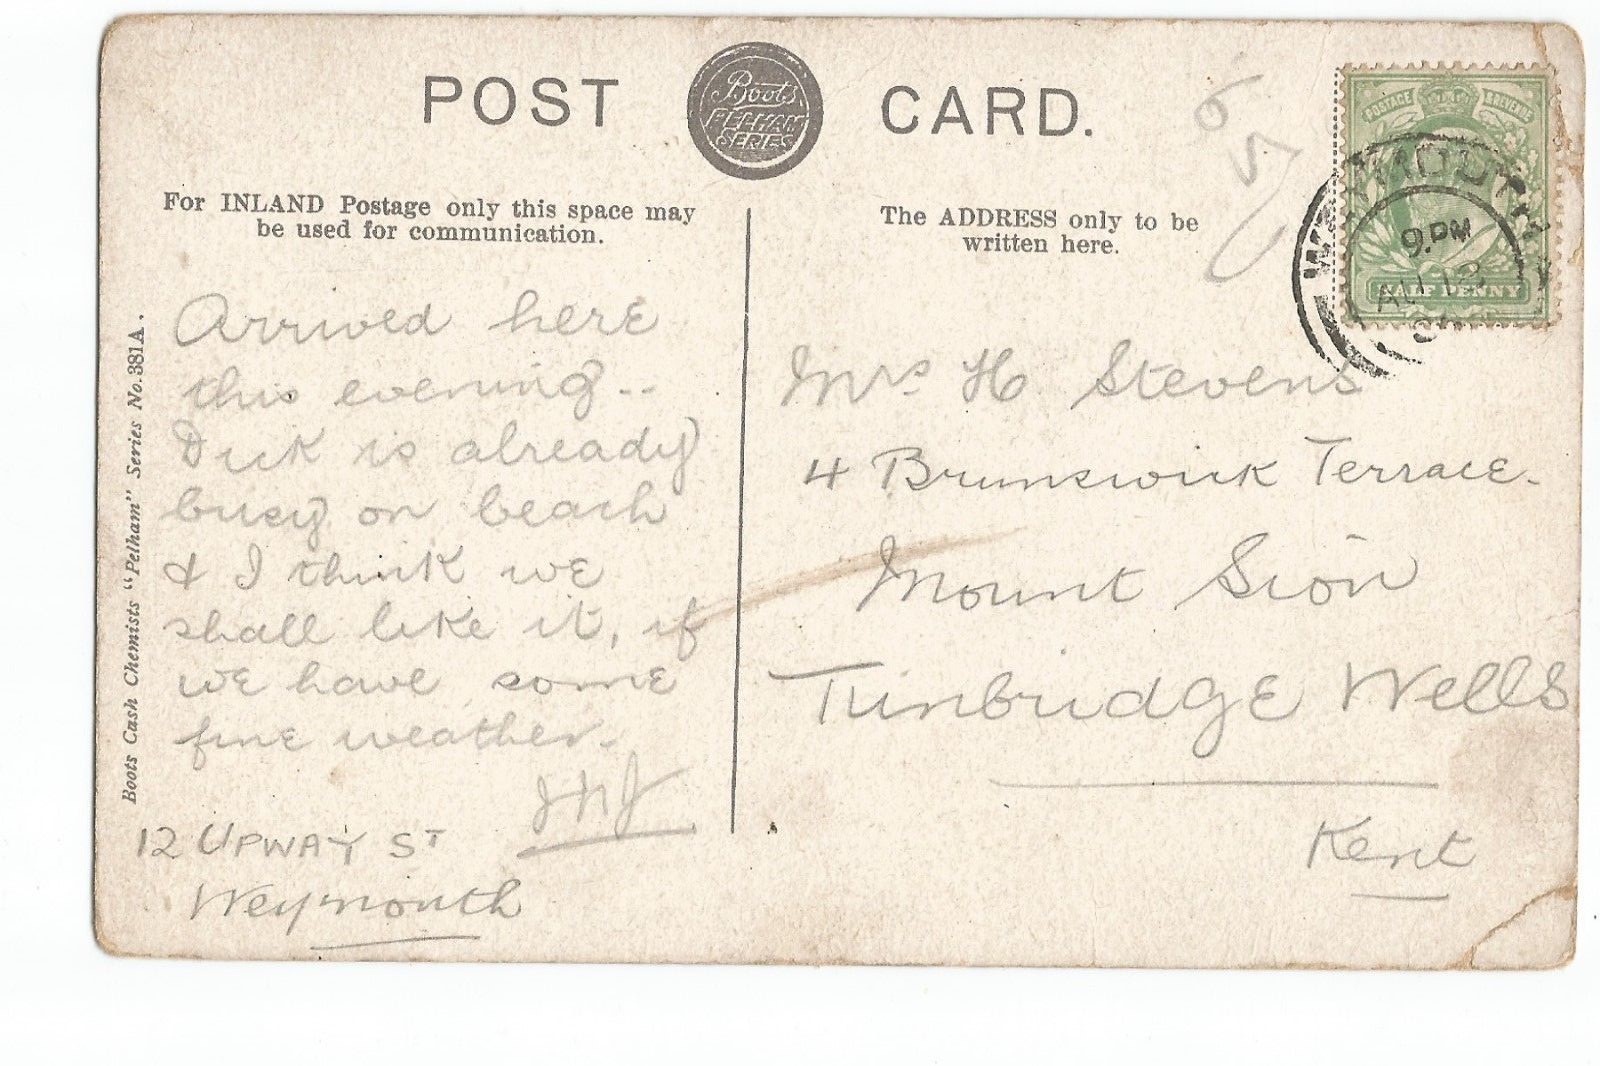 POST CARD.
Boots
PELHAM
SERIES
For INLAND Postage only this space may
be used for communication.
The ADDRESS only to be
written here.
POSTAGE & REVENUE
HALF PENNY
WEYMOUTH
9.PM
AU 12
65
Arrived here
this evening..
Dick is already
busy on beach
& I think we
shall like it, if
we have some
fine weather.
12 UPWAY ST
Weymouth
Mrs H Stevens
4 Brunswick Terrace.
Mount Sion
Tunbridge Wells
Kent
Boots Cash Chemists "Pelham" Series No. 381A.